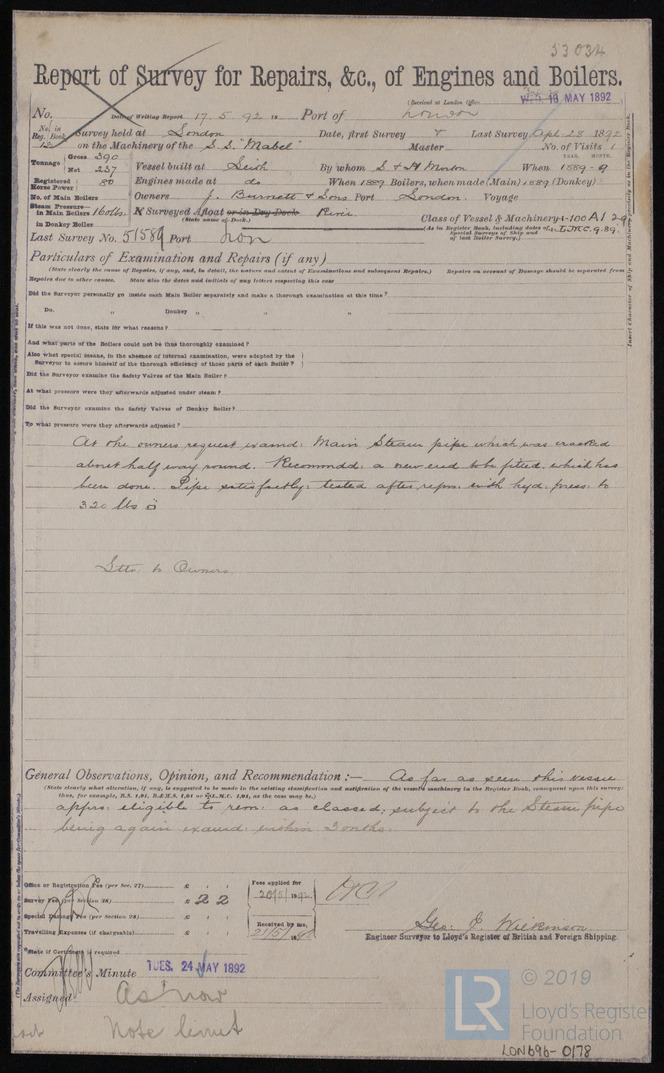 53034
Report of Survey for Repairs, &c., of Engines and Boilers.
(Received at London Office 18 MAY 1892
No. Date of Writing Report 17.5.92 18 Port of London
No. in Reg. Book Survey held at London Date, first Survey Last Survey Apl. 28 1892
on the Machinery of the S.S. "Mabel" Master No. of Visits 1
Tonnage Gross 390 Net 237 Vessel built at Leith By whom S & H Morton When 1889-9
Registered Horse Power 80 Engines made at do When 1889 Boilers, when made (Main) 1889 (Donkey)
No. of Main Boilers Owners J. Burnett & Sons Port London. Voyage
Steam Pressure in Main Boilers 160 lbs. If Surveyed Afloat or in Dry Dock River Class of Vessel & Machinery
in Donkey Boiler (State name of Dock.) (As in Register Book, including dates of Special Surveys of Ship and of last Boiler Survey.) L.M.C. 9.89.
Last Survey No. 51589 Port Lon
Particulars of Examination and Repairs (if any)
(State clearly the cause of Repairs, if any, and, in detail, the nature and extent of Examinations and subsequent Repairs.) Repairs on account of Damage should be separated from
Repairs due to other causes. State also the dates and initials of any letters respecting this case
Did the Surveyor personally go inside each Main Boiler separately and make a thorough examination at this time?
Do. „ Donkey „ „ „
If this was not done, state for what reasons?
And what parts of the Boilers could not be thus thoroughly examined?
Also what special means, in the absence of internal examination, were adopted by the
Surveyor to assure himself of the thorough efficiency of those parts of each Boiler?
Did the Surveyor examine the Safety Valves of the Main Boiler?
At what pressure were they afterwards adjusted under steam?
Did the Surveyor examine the Safety Valves of Donkey Boiler?
To what pressure were they afterwards adjusted?
At the owners request examd: Main Steam pipe which was cracked
about half way round. Recommdd: a new end to be fitted, which has
been done. Pipe satisfactly: tested after repra: with hyd: press: to
320 lbs
to Owners
General Observations, Opinion, and Recommendation:— As far as seen this vessel
(State clearly what alteration, if any, is suggested to be made in the existing classification and notification of the vessel's machinery in the Register Book, consequent upon this survey:
thus, for example, B.S. 1,91, B.&M.S. 1,91 or L.M.C. 1,91, as the case may be.)
appra: eligible to rem: as classed, subject to the Steam pipe
being again examd: within 3 onths.
Office or Registration Fee (per Sec. 27) £
Survey Fee (per Section 28) £ 2 2
Special Damage Fee (per Section 28) £
Travelling Expenses (if chargeable) £
Fees applied for 20/5/1892
Received by me, 21/5/18
Geo: J. Wilkinson
Engineer Surveyor to Lloyd's Register of British and Foreign Shipping.
State if Certificate is required
Committee's Minute TUES. 24 MAY 1892
Assigned As now
Note limit
© 2019
LR
Lloyd's Register
Foundation
LON696-0178